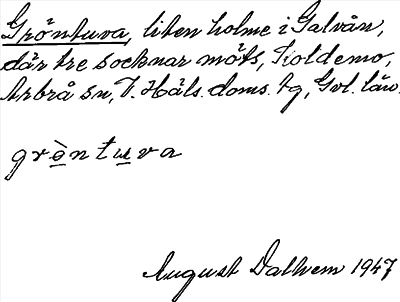 Gröntuva, liten holme i Galvån,
där tre socknar möts, Koldemo,
Arbrå sn, V. Häls. doms. tg, Gvl. län.
grèntuva
August Dalhem 1947